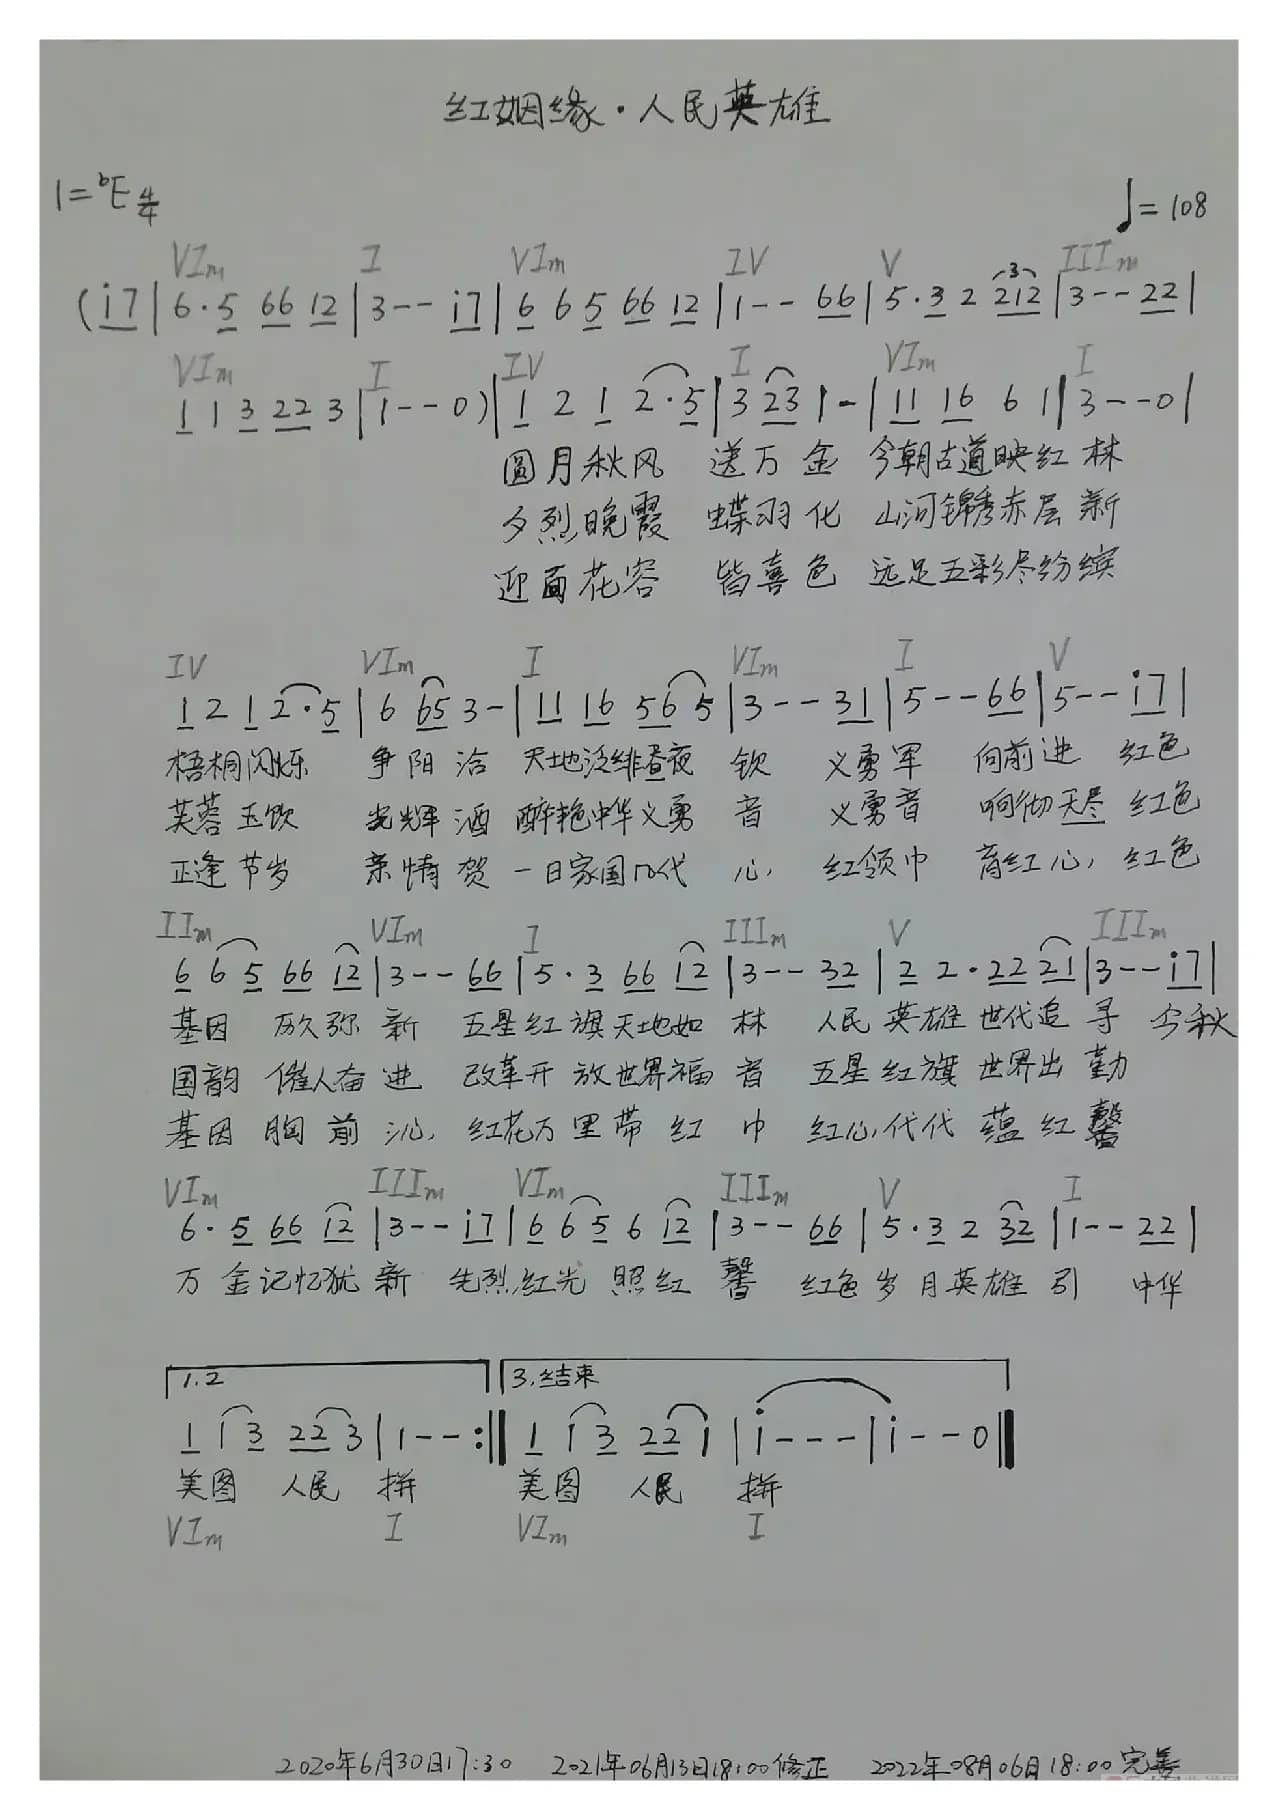 红姻缘·人民英雄
1=♭E 4/4
♩=108
VIm I VIm IV V III m
(i7|6·5 66 12|3--i7|6 6 5 66 12|1--66|5·3 2 212|3--22|
3
VIm I IV I VIm I
1 1 3 22 3|1--0)|1 2 1 2·5|3 23 1-|11 16 6 1|3--0|
圆月秋风 送万金 今朝古道映红林
夕烈晚霞 蝶羽化 山河锦秀赤层新
迎面花容 皆喜色 远足五彩尽纷缤
IV VIm I VIm I V
1 2 1 2·5|6 65 3-|11 16 56 5|3--31|5--66|5--i7|
梧桐闪烁 争阳洽 天地泛绯昼夜 钦 义勇军 向前进 红色
芙蓉玉饮 光辉酒 醉艳中华义勇 音 义勇音 响彻天尽 红色
正逢节岁 亲情贺 一日家国几代 心, 红领巾 育红心, 红色
IIm VIm I IIIm V IIIm
6 6 5 66 12|3--66|5·3 66 12|3--32|2 2·22 21|3--i7|
基因 历久弥新 五星红旗天地如林 人民英雄世代追寻 今秋
国韵 催人奋进 改革开放世界福音 五星红旗世界出勤
基因胸前沁, 红花万里带红巾 红心,代代蕴红馨
VIm IIIm VIm IIIm V I
6·5 66 12|3--i7|6 6 5 6 12|3--66|5·3 2 32|1--22|
万金记忆犹新 先烈,红光照红馨 红色岁月英雄引 中华
1.2 3,结束
1 1 3 22 3|1--:‖1 1 3 22 1|i---|i--0‖
美图 人民 拼 美图 人民 拼
VIm I VIm I
2020年6月30日17:30 2021年06月13日18:00修正 2022年08月06日18:00完善